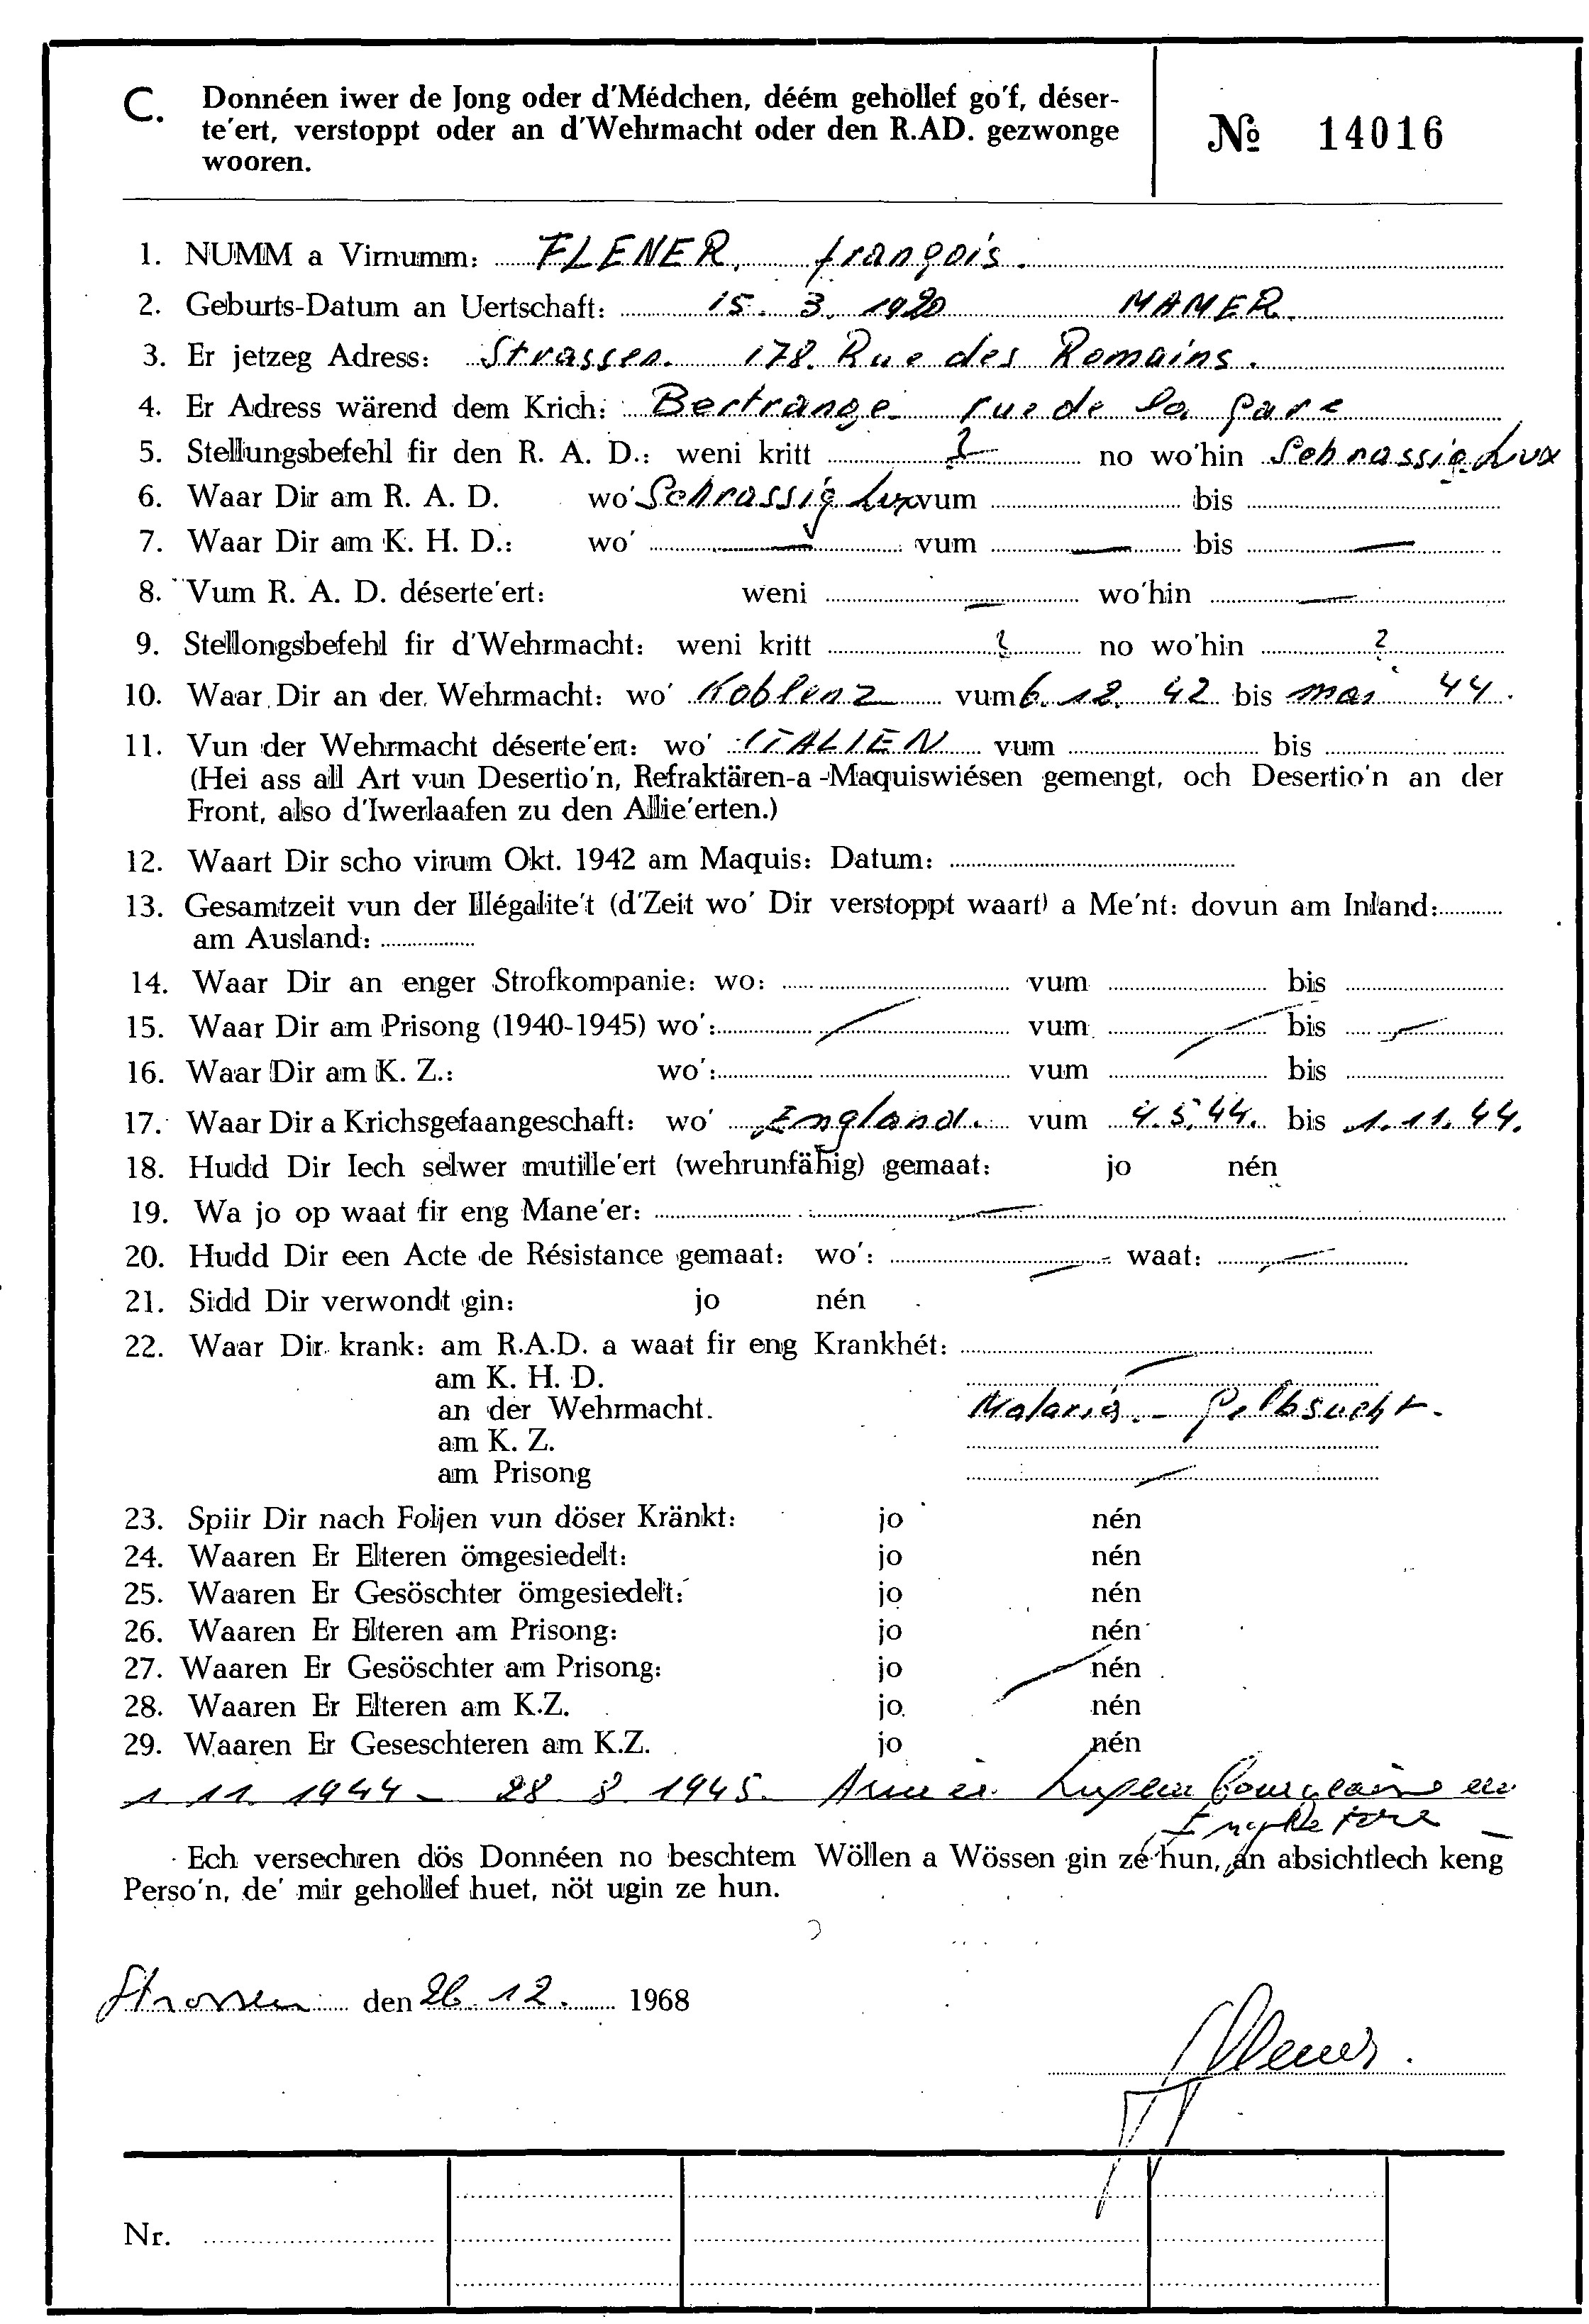 C. Donnéen iwer de Jong oder d'Médchen, déém gehöllef go'f, déser-
te'ert, verstoppt oder an d'Wehrmacht oder den R.AD. gezwonge
wooren.
№ 14016
1. NUMM a Virnumm: FLENER, françois.
2. Geburts-Datum an Uertschaft: 15. 3. 1920 MAMER.
3. Er jetzeg Adress: Strassen. 178. Rue des Romains.
4. Er Adress wärend dem Krich: Bertrange rue de la gare
5. Stellungsbefehl fir den R. A. D.: weni kritt ? no wo'hin Schrassig Lux
6. Waar Dir am R. A. D. wo' Schrassig Lux vum bis
7. Waar Dir am K. H. D.: wo' — vum — bis —
8. Vum R. A. D. déserte'ert: weni — wo'hin —
9. Stellongsbefehl fir d'Wehrmacht: weni kritt ? no wo'hin ?
10. Waar Dir an der Wehrmacht: wo' Koblenz vum 6. 12. 42 bis mai 44.
11. Vun der Wehrmacht déserte'ert: wo' ITALIEN vum bis
(Hei ass all Art vun Desertio'n, Refraktären-a -Maquiswiésen gemengt, och Desertio'n an der
Front, also d'Iwerlaafen zu den Allie'erten.)
12. Waart Dir scho virum Okt. 1942 am Maquis: Datum:
13. Gesamtzeit vun der Illégalite't (d'Zeit wo' Dir verstoppt waart) a Me'nt: dovun am Inland:
am Ausland:
14. Waar Dir an enger Strofkompanie: wo: vum bis
15. Waar Dir am Prisong (1940-1945) wo': — vum — bis —
16. Waar Dir am K. Z.: wo': vum bis
17. Waar Dir a Krichsgefaangeschaft: wo' England. vum 4.5.44. bis 1.11.44.
18. Hudd Dir Iech selwer mutille'ert (wehrunfähig) gemaat: jo nén
19. Wa jo op waat fir eng Mane'er: —
20. Hudd Dir een Acte de Résistance gemaat: wo': — waat: —
21. Sidd Dir verwondt gin: jo nén
22. Waar Dir krank: am R.A.D. a waat fir eng Krankhét:
am K. H. D. —
an der Wehrmacht. Malaria. - Gelbsucht.
am K. Z.
am Prisong —
23. Spiir Dir nach Foljen vun döser Kränkt: jo nén
24. Waaren Er Elteren ömgesiedelt: jo nén
25. Waaren Er Gesöschter ömgesiedelt: jo nén
26. Waaren Er Elteren am Prisong: jo nén
27. Waaren Er Gesöschter am Prisong: jo nén
28. Waaren Er Elteren am K.Z. jo nén
29. Waaren Er Geseschteren am K.Z. jo nén
1 11. 1944 - 28. 8. 1945. Armée Luxembourgeoise en
Engleterre
Ech versechren dös Donnéen no beschtem Wöllen a Wössen gin zé hun, an absichtlech keng
Perso'n, de' mir gehollef huet, nöt ugin ze hun.
Strassen den 26. 12. 1968
Flener.
Nr.